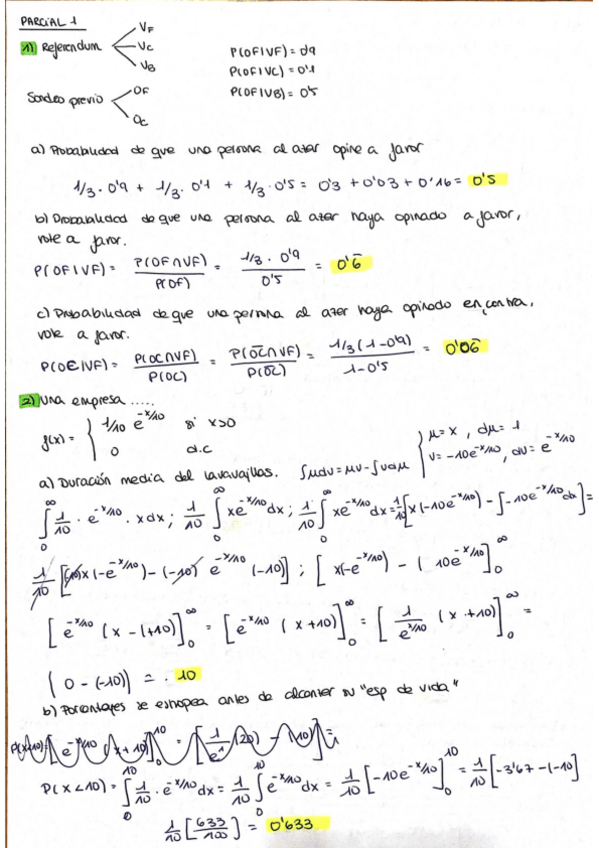 PARCIAL 1
1) Referendum
VF
VC
VB
P(OF|VF) = 0'9
P(OF|VC) = 0'1
P(OF|VB) = 0'5
Sondeo previo
OF
OC
a) Probabilidad de que una persona al azar opine a favor
1/3 · 0'9 + 1/3 · 0'1 + 1/3 · 0'5 = 0'3 + 0'03 + 0'16 = 0'5
b) Probabilidad de que una persona al azar haya opinado a favor,
vote a favor.
P(OF|VF) = P(OF∩VF)/P(OF) = (1/3 · 0'9)/0'5 = 0'6
c) Probabilidad de que una persona al azar haya opinado en contra,
vote a favor.
P(OC|VF) = P(OC∩VF)/P(OC) = P(OC∩VF)/P(OC) = 1/3(1-0'9)/(1-0'5) = 0'06
2) Una empresa .....
f(x) = { 1/10 e^(-x/10) si x>0
0 d.c
a) Duración media del lavavajillas. ∫udv = uv - ∫vdu
u = x, du = 1
v = -10e^(-x/10), dv = e^(-x/10)
∫₀^∞ 1/10 · e^(-x/10) · x dx ; 1/10 ∫₀^∞ xe^(-x/10) dx ; 1/10 ∫₀^∞ xe^(-x/10) dx = 1/10 [x(-10e^(-x/10)) - ∫-10e^(-x/10) dx] =
1/10 [(10)x(-e^(-x/10)) - (-10) e^(-x/10) (-10)] ; [x(-e^(-x/10)) - (10e^(-x/10)]₀^∞
[e^(-x/10) (x - (+10)]₀^∞ = [e^(-x/10) (x + 10)]₀^∞ = [1/e^(x/10) (x + 10)]₀^∞ =
(0 - (-10)) = 10
b) Porcentajes se estropea antes de alcanzar su "esp de vida"
P(X<10) = ∫₀^10 1/10 · e^(-x/10) dx = 1/10 ∫₀^10 e^(-x/10) dx = 1/10 [-10e^(-x/10)]₀^10 = 1/10 [-3'67 - (-10]
1/10 [633/100] = 0'633